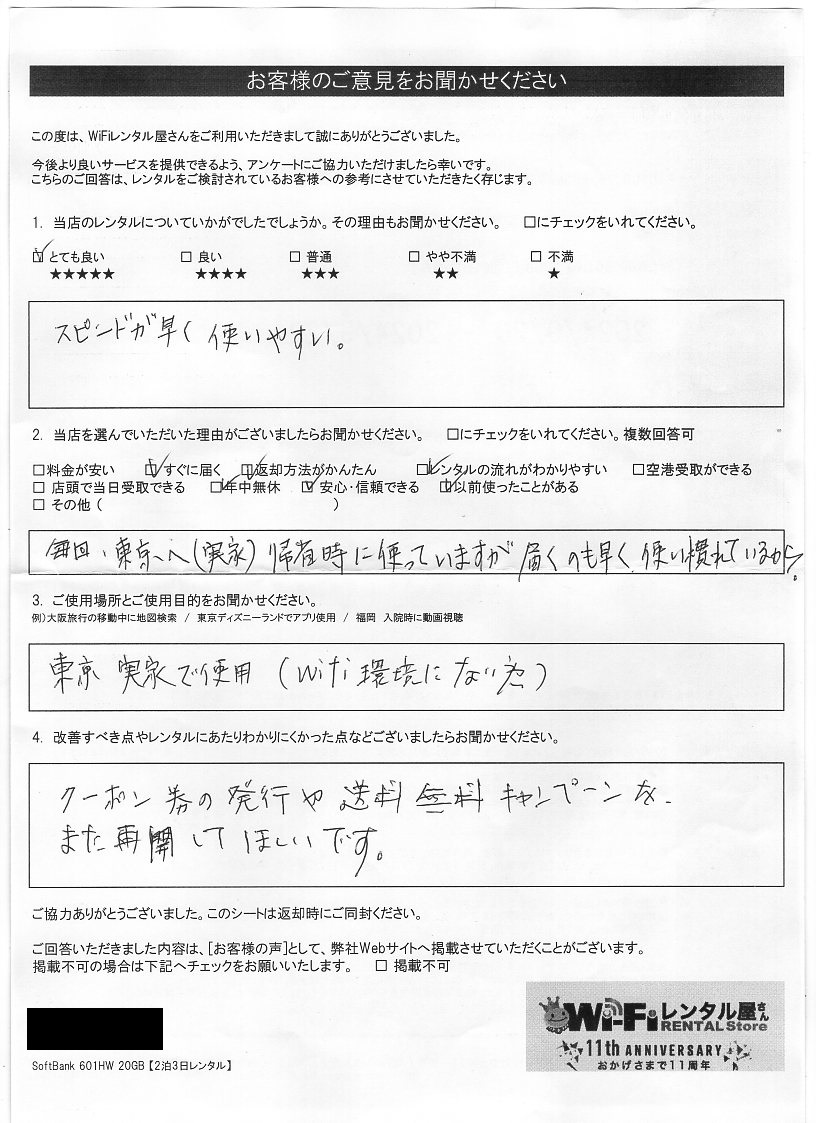 お客様のご意見をお聞かせください
この度は、WiFiレンタル屋さんをご利用いただきまして誠にありがとうございました。
今後より良いサービスを提供できるよう、アンケートにご協力いただけましたら幸いです。
こちらのご回答は、レンタルをご検討されているお客様への参考にさせていただきたく存じます。
1. 当店のレンタルについていかがでしたでしょうか。その理由もお聞かせください。 □にチェックをいれてください。
☑ とても良い □ 良い □ 普通 □ やや不満 □ 不満
★★★★★ ★★★★ ★★★ ★★ ★
スピードが早く 使いやすい。
2. 当店を選んでいただいた理由がございましたらお聞かせください。 □にチェックをいれてください。複数回答可
□料金が安い ☑すぐに届く ☑返却方法がかんたん ☑レンタルの流れがわかりやすい □空港受取ができる
□ 店頭で当日受取できる ☑年中無休 ☑ 安心・信頼できる ☑以前使ったことがある
□ その他 ( )
毎回、東京へ(実家)帰省時に使っていますが 届くのも早く、使い慣れているから。
3. ご使用場所とご使用目的をお聞かせください。
例)大阪旅行の移動中に地図検索 / 東京ディズニーランドでアプリ使用 / 福岡 入院時に動画視聴
東京 実家で使用 (wifi環境にない為)
4. 改善すべき点やレンタルにあたりわかりにくかった点などございましたらお聞かせください。
クーポン券の発行や送料無料キャンペーンを、
また再開してほしいです。
ご協力ありがとうございました。このシートは返却時にご同封ください。
ご回答いただきました内容は、[お客様の声]として、弊社Webサイトへ掲載させていただくことがございます。
掲載不可の場合は下記へチェックをお願いいたします。 □ 掲載不可
Wi-Fiレンタル屋さん
RENTAL Store
11th ANNIVERSARY
おかげさまで11周年
SoftBank 601HW 20GB【2泊3日レンタル】